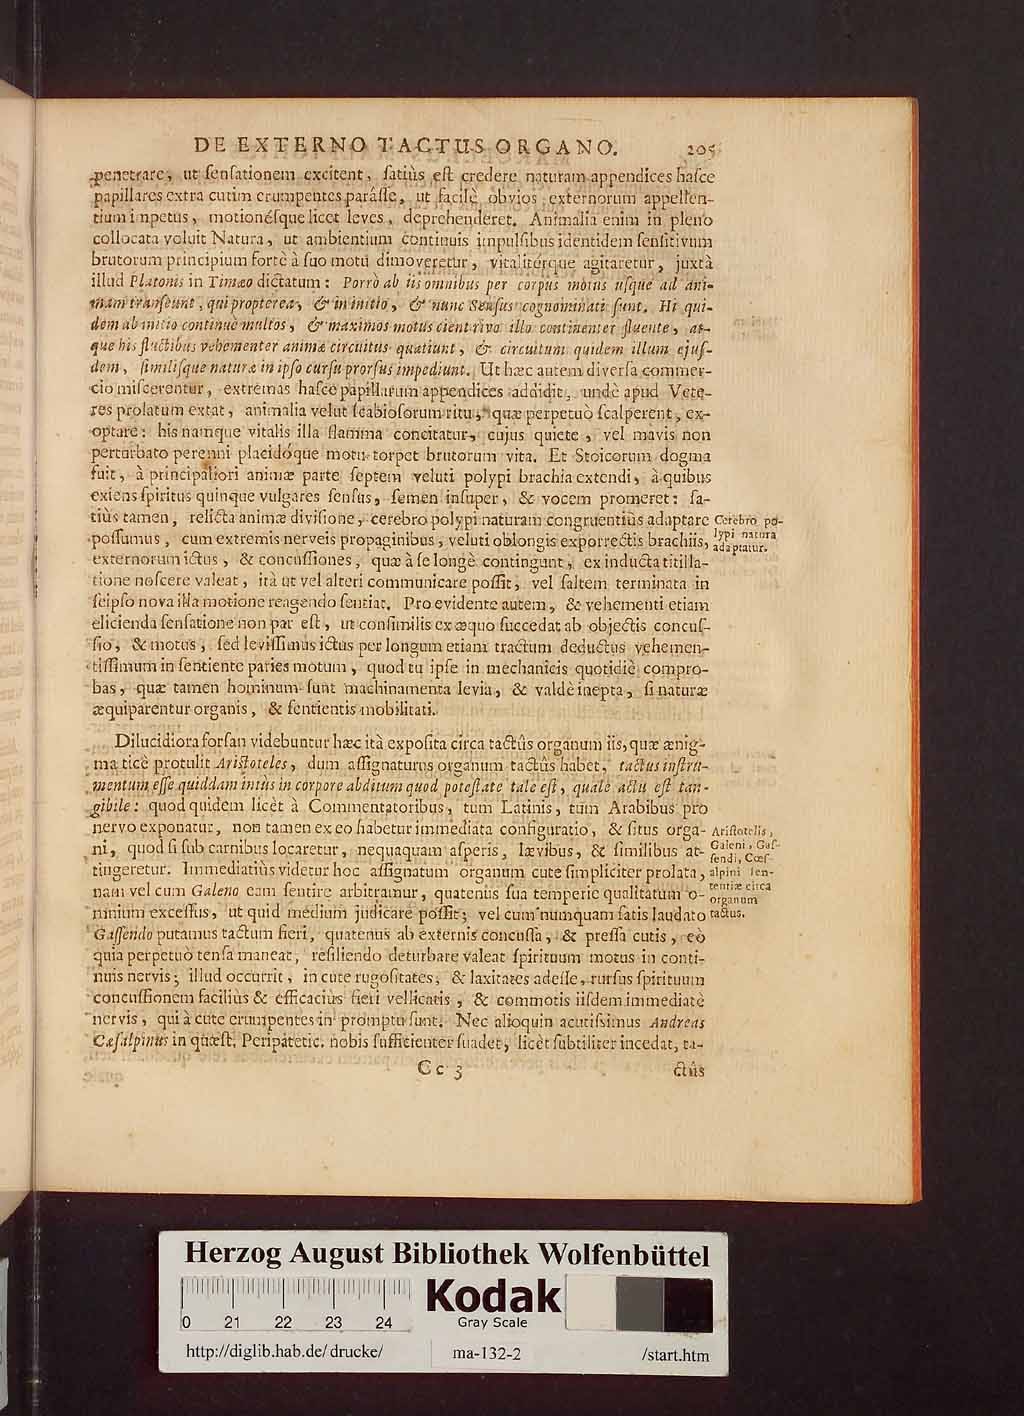 DE EXTERNO TACTUS ORGANO. 205
penetrare, ut ſenſationem excitent, ſatiùs eſt credere naturam appendices haſce
papillares extra cutim erumpentes parâſſe, ut facilè obvios externorum appellen-
tium impetus, motionéſque licet leves, deprehenderet. Animalia enim in pleno
collocata voluit Natura, ut ambientium continuis impulſibus identidem ſenſitivum
brutorum principium fortè à ſuo motu dimoveretur, vitalitérque agitaretur, juxtà
illud Platonis in Timæo dictatum: Porrò ab iis omnibus per corpus motus uſque ad ani-
mam tranſeunt, qui propterea, & in initio, & nunc Senſus cognominati ſunt. Hi qui-
dem ab initio continuè multos, & maximos motus cient rivo illo continenter fluente, at-
que his fluctibus vehementer animæ circuitus quatiunt, & circuitum quidem illum ejuſ-
dem, ſimiliſque naturæ in ipſo curſu prorſus impediunt. Ut hæc autem diverſa commer-
cio miſcerentur, extremas haſce papillarum appendices addidit, undè apud Vete-
res prolatum extat, animalia velut ſcabioſorum ritu, quæ perpetuò ſcalperent, ex-
optare: his namque vitalis illa flamma concitatur, cujus quiete, vel mavis non
perturbato perenni placidóque motu torpet brutorum vita. Et Stoicorum dogma
fuit, à principaliori animæ parte ſeptem veluti polypi brachia extendi, à quibus
exiens ſpiritus quinque vulgares ſenſus, ſemen inſuper, & vocem promeret: ſa-
tiùs tamen, relicta animæ diviſione, cerebro polypi naturam congruentiùs adaptare
poſſumus, cum extremis nerveis propaginibus, veluti oblongis exporrectis brachiis,
externorum ictus, & concuſſiones, quæ à ſe longè contingunt, ex inducta titilla-
tione noſcere valeat, ità ut vel alteri communicare poſſit, vel ſaltem terminata in
ſeipſo nova illa motione reagendo ſentiat. Pro evidente autem, & vehementi etiam
elicienda ſenſatione non par eſt, ut conſimilis ex æquo ſuccedat ab objectis concuſ-
ſio, & motus, ſed leviſſimus ictus per longum etiam tractum deductus vehemen-
tiſſimum in ſentiente paries motum, quod tu ipſe in mechanicis quotidiè compro-
bas, quæ tamen hominum ſunt machinamenta levia, & valdè inepta, ſi naturæ
æquiparentur organis, & ſentientis mobilitati.
Cerebro po-
lypi natura
adaptatur.
Dilucidiora forſan videbuntur hæc ità expoſita circa tactûs organum iis, quæ ænig-
maticè protulit Ariſtoteles, dum aſſignaturus organum tactûs habet, tactus inſtru-
mentum eſſe quiddam intùs in corpore abditum quod poteſtate tale eſt, quale actu eſt tan-
gibile: quod quidem licèt à Commentatoribus, tum Latinis, tum Arabibus pro
nervo exponatur, non tamen ex eo habetur immediata configuratio, & ſitus orga-
ni, quod ſi ſub carnibus locaretur, nequaquam aſperis, lævibus, & ſimilibus at-
tingeretur. Immediatiùs videtur hoc aſſignatum organum cute ſimpliciter prolata,
nam vel cum Galeno eam ſentire arbitramur, quatenùs ſua temperie qualitatum o-
mnium exceſſus, ut quid medium judicare poſſit; vel cum numquam ſatis laudato
Gaſſendo putamus tactum fieri, quatenus ab externis concuſſa, & preſſa cutis, eò
quia perpetuò tenſa maneat, reſiliendo deturbare valeat ſpirituum motus in conti-
nuis nervis; illud occurrit, in cute rugoſitates, & laxitates adeſſe, rurſus ſpirituum
concuſſionem faciliùs & efficaciùs fieri vellicatis, & commotis iiſdem immediatè
nervis, qui à cute erumpentes in promptu ſunt. Nec alioquin acutiſsimus Andreas
Cæſalpinus in quæſt. Peripàtetic. nobis ſufficienter ſuadet, licèt ſubtiliter incedat, ta-
Ariſtotelis,
Galeni, Gaſ-
ſendi, Cœſ-
alpini ſen-
tentiæ circa
organum
tactus.
Cc 3 ctûs
Herzog August Bibliothek Wolfenbüttel
0 21 22 23 24
Kodak
Gray Scale
http://diglib.hab.de/drucke/ ma-132-2 /start.htm